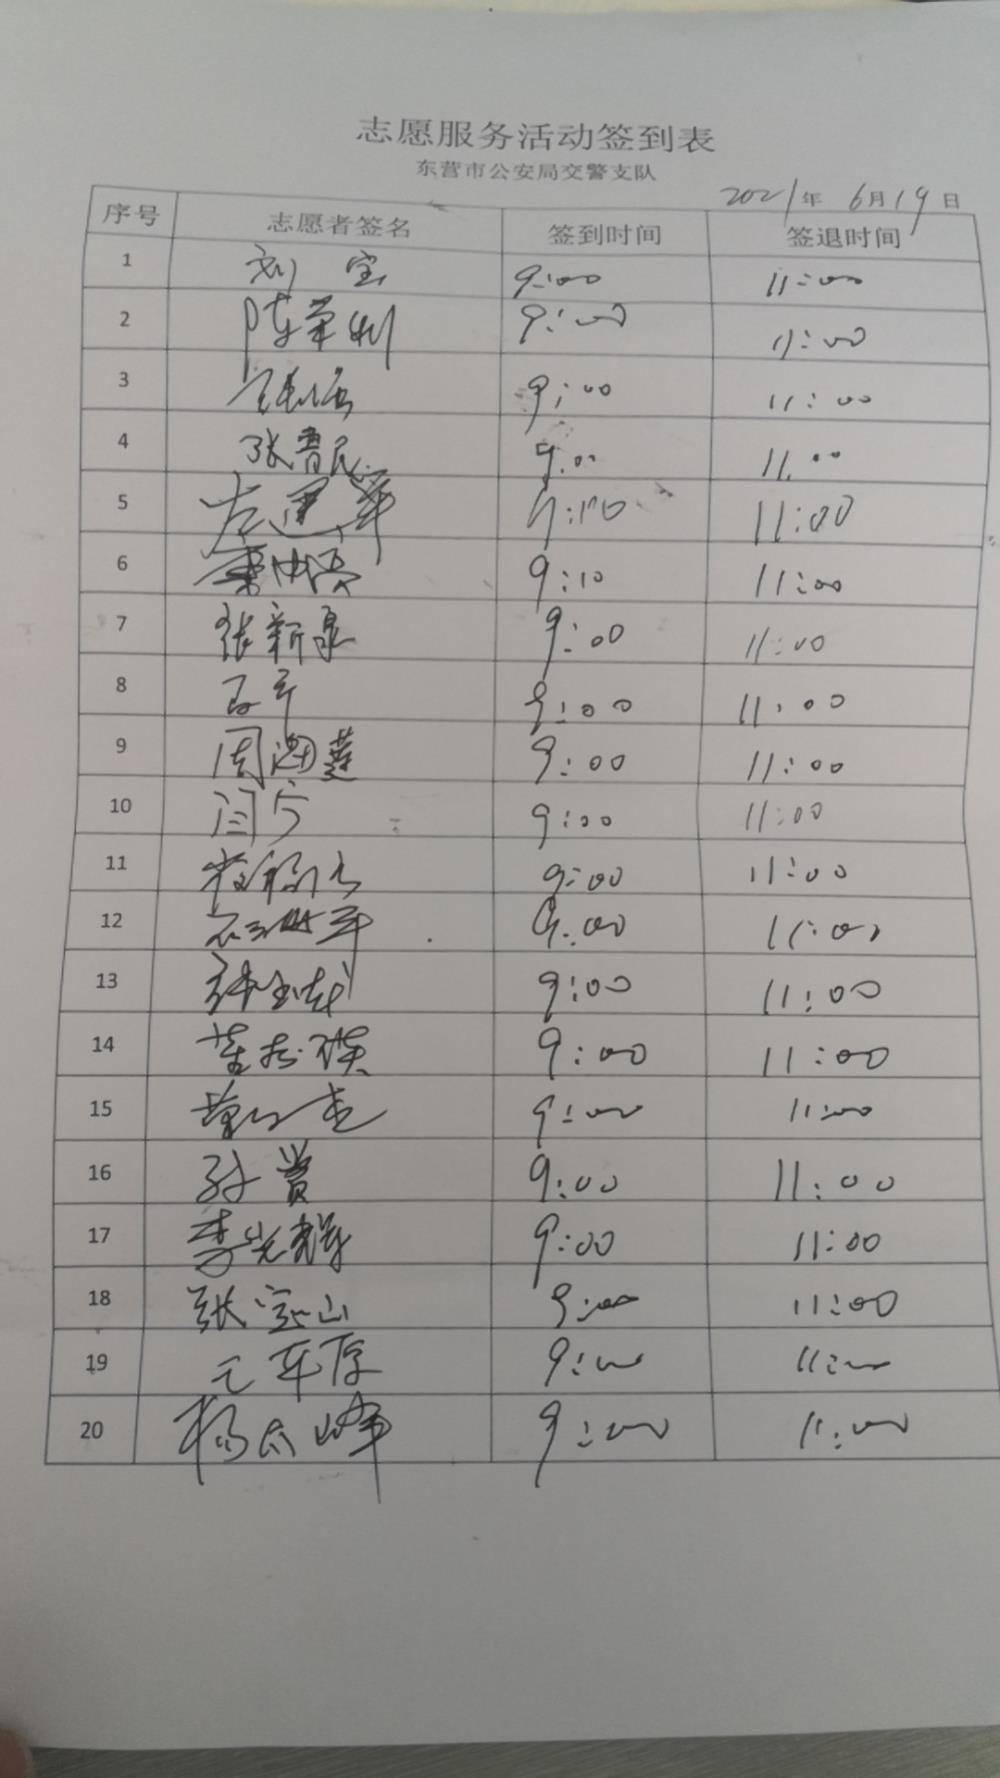 志愿服务活动签到表
东营市公安局交警支队
2021年 6月19日
序号 志愿者签名 签到时间 签退时间
1 刘 宝 9:00 11:00
2 陈荣利 9:00 11:00
3 9:00 11:00
4 张曾民 9:00 11:00
5 左建军 9:10 11:00
6 9:10 11:00
7 张新泉 9:00 11:00
8 9:00 11:00
9 周海莲 9:00 11:00
10 闫宁 9:00 11:00
11 9:00 11:00
12 9:00 11:00
13 9:00 11:00
14 9:00 11:00
15 9:00 11:00
16 孙贵 9:00 11:00
17 李光辉 9:00 11:00
18 张宝山 9:00 11:00
19 9:00 11:00
20 杨太峰 9:00 11:00